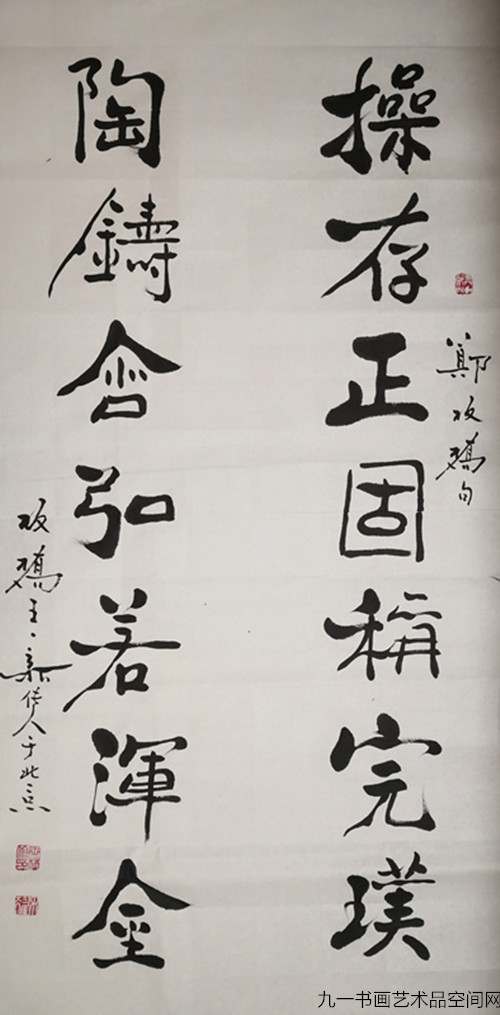 鄭板橋句
操存正固稱完璞
陶鑄含弘若渾金
板橋 人于北京
九一书画艺术品空间网